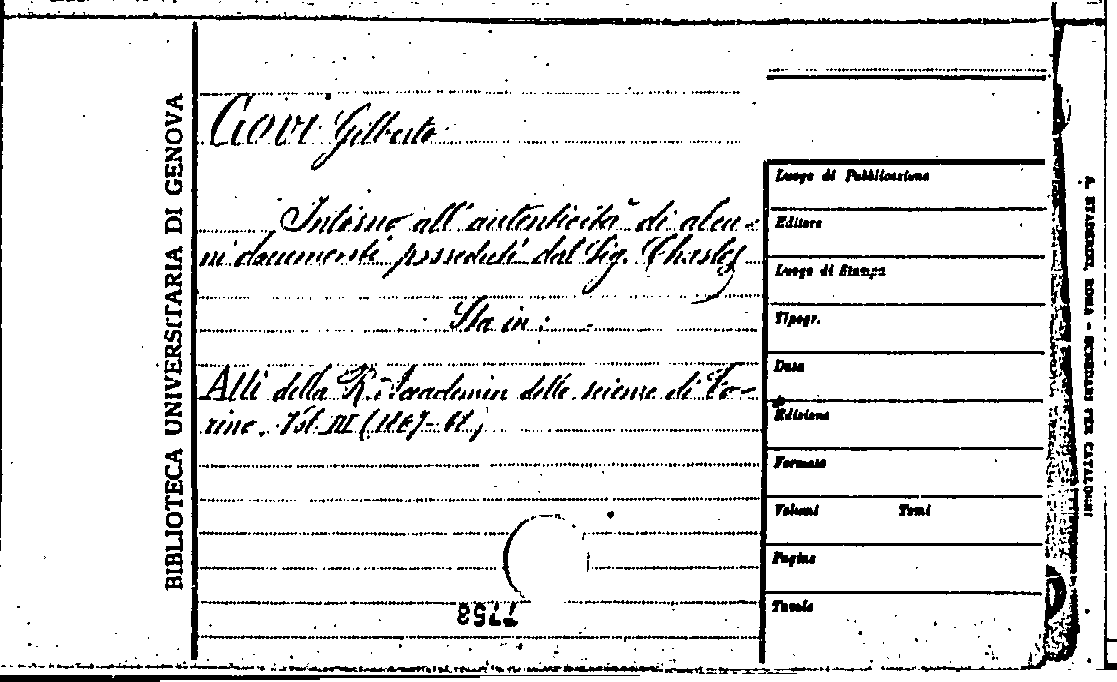 BIBLIOTECA UNIVERSITARIA DI GENOVA
Govi Gilberto
Intorno all'autenticità di alcu-
ni documenti posseduti dal Sig. Chasles
Sta in:
Atti della R. Accademia delle scienze di To-
rino. Vol. III (1867-68)
7758
Luogo di Pubblicazione
Editore
Luogo di Stampa
Tipogr.
Data
Edizione
Formato
Volumi Tomi
Pagine
Tavole
A. STADERINI, ROMA - SCHEDARI PER CATALOGHI